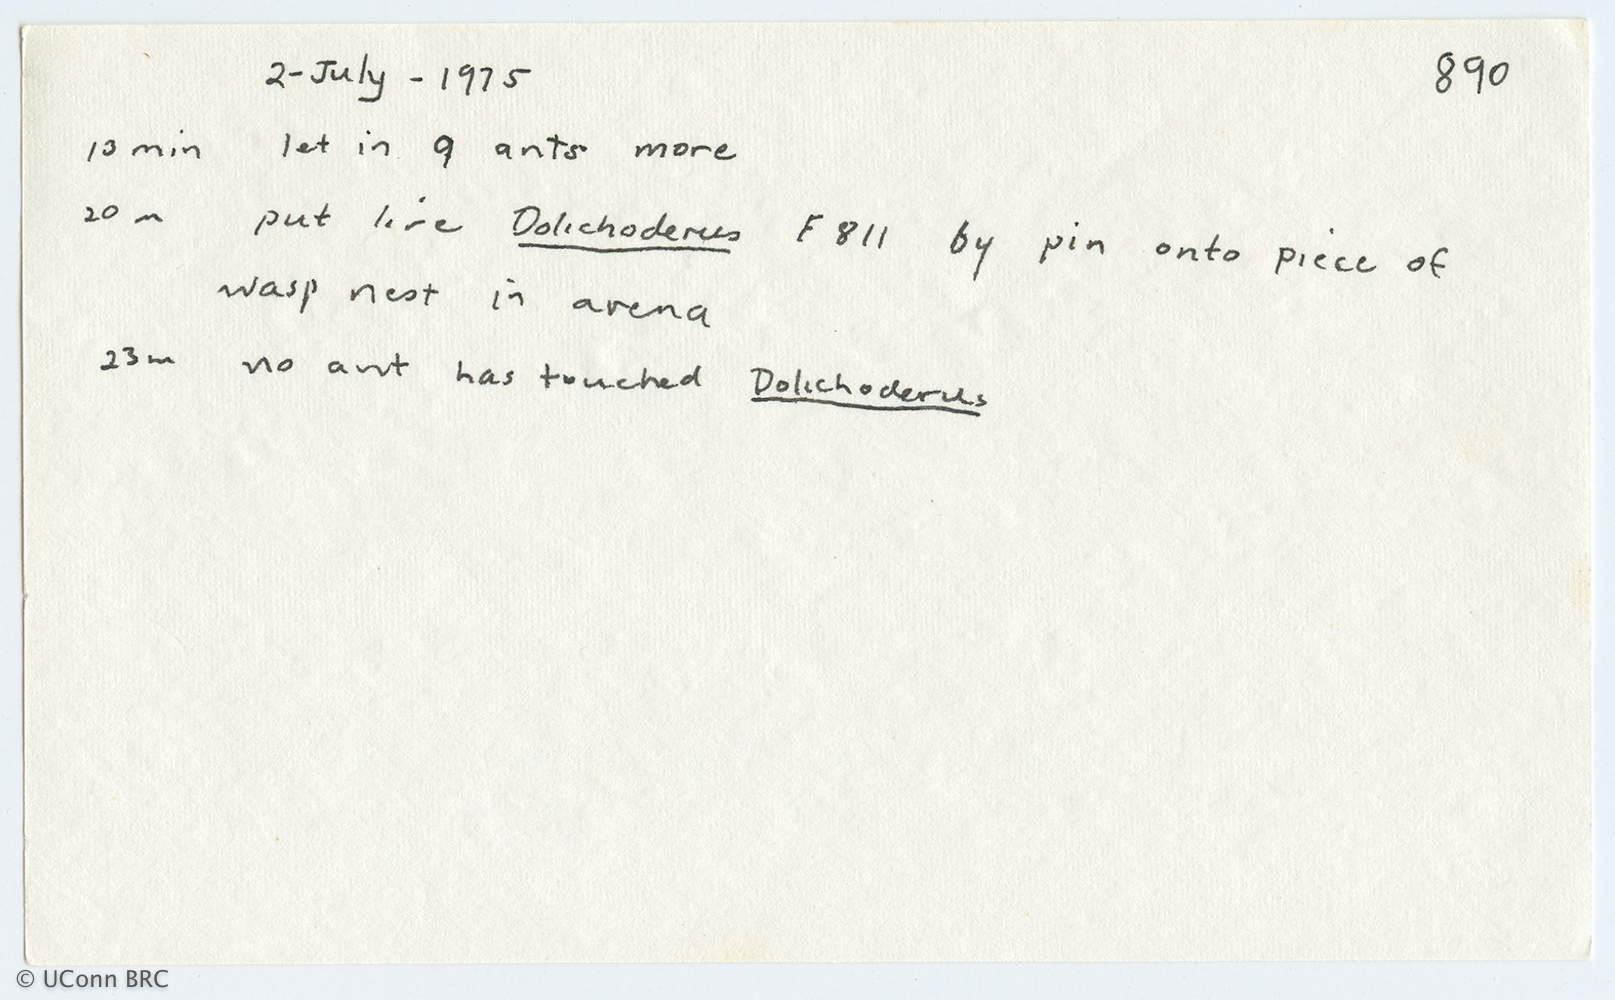 2-July-1975 890
13 min let in 9 ants more
20 m put live Dolichoderus F 811 by pin onto piece of
wasp nest in arena
23 m no ant has touched Dolichoderus
© UConn BRC